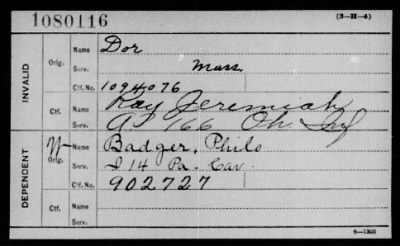 1080116 (3-H-4)
INVALID
Orig. Name Dor
Serv. Mass
Ctf. No. 1094076
Ctf. Name Ray Jeremiah
Serv. A 166 Oh. Inf
DEPENDENT
Orig. Name Badger, Philo
Serv. I 14 Pa. Cav.
Ctf. No. 902727
Ctf. Name
Serv.